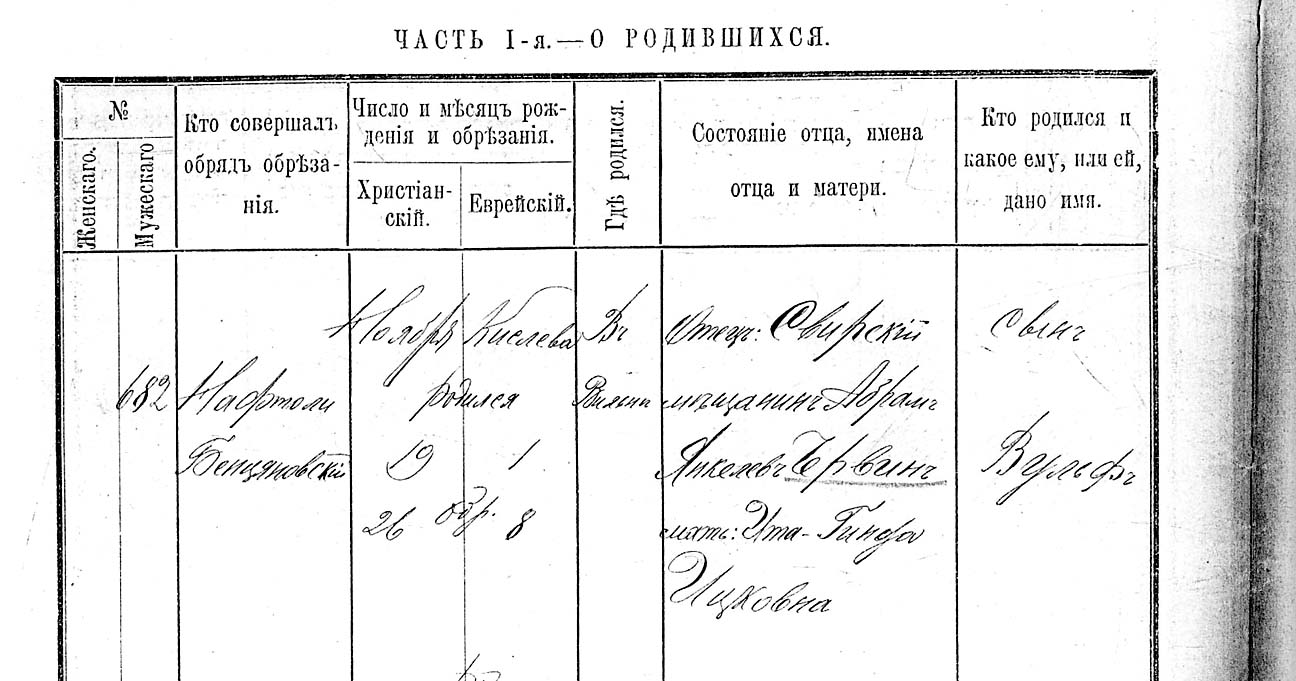 ЧАСТЬ I-я.—О РОДИВШИХСЯ.
№
Женскаго.
Мужескаго
Кто совершалъ
обрядъ обрѣза-
нія.
Число и мѣсяцъ рож-
денія и обрѣзанія.
Христіан-
скій.
Еврейскій.
Гдѣ родился.
Состояніе отца, имена
отца и матери.
Кто родился и
какое ему, или ей,
дано имя.
682
Нафтоли
Бенцяновскій
Ноября
Кислева
родился
19 1
26 обр. 8
Въ
Вильнѣ
Отецъ: Свирскій
мѣщанинъ Абрамъ
Янкелевъ
мать: Ита-Гинда
Ицковна
сынъ
Вульфъ